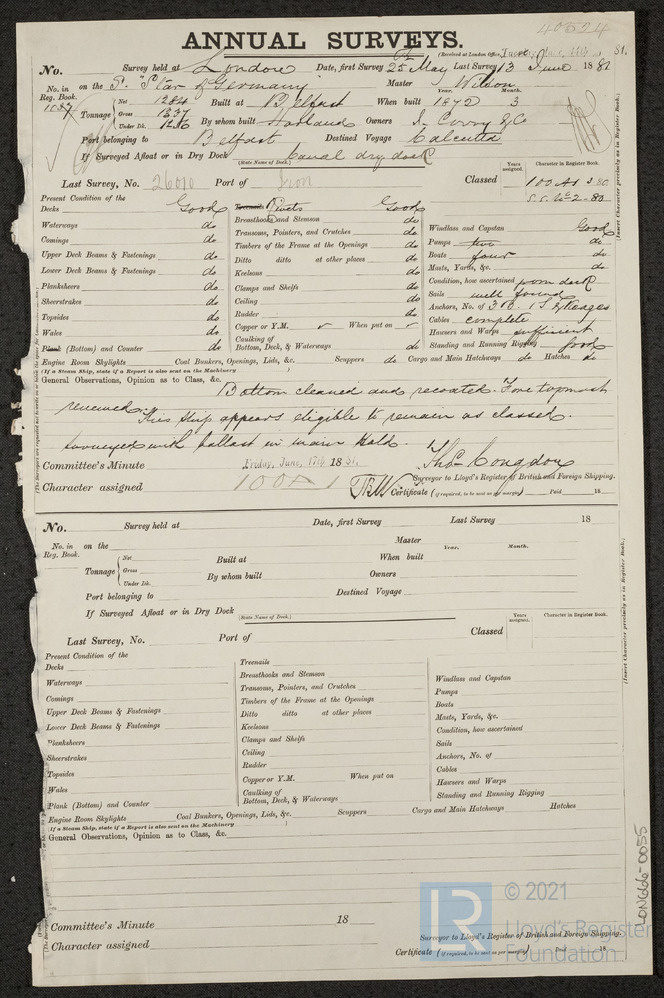 40524
ANNUAL SURVEYS.
(Received at London Office, Tuesday, June, 14th, 81.
No. Survey held at London Date, first Survey 25th May Last Survey 13 June 1881
No. in Reg. Book. on the S. "Star of Germany" Master Wilson
1037
Tonnage Net 1284 Gross 1337 Under Dk. Built at Belfast When built Year. 1872 Month. 3
By whom built Harland Owners J. Corry & Co
Port belonging to Belfast Destined Voyage Calcutta
If Surveyed Afloat or in Dry Dock Canal dry dock
(State Name of Dock.)
Years assigned. Character in Register Book.
Last Survey, No. 26010 Port of Iron Classed 100 A1 2.80
S.S. No 2-80
Present Condition of the
Decks Good
Waterways do
Comings do
Upper Deck Beams & Fastenings do
Lower Deck Beams & Fastenings do
Planksheers do
Sheerstrakes do
Topsides do
Wales do
Plank (Bottom) and Counter do
Treenails Rivets Good
Breasthooks and Stemson do
Transoms, Pointers, and Crutches do
Timbers of the Frame at the Openings do
Ditto ditto at other places do
Keelsons do
Clamps and Shelfs do
Ceiling do
Rudder do
Copper or Y.M. When put on
Caulking of
Bottom, Deck, & Waterways do
Windlass and Capstan Good
Pumps two do
Boats four do
Masts, Yards, &c. do
Condition, how ascertained from deck
Sails well found
Anchors, No. of 3 B. 1 S. & Kedges
Cables complete
Hawsers and Warps sufficient
Standing and Running Rigging good
Engine Room Skylights Coal Bunkers, Openings, Lids, &c. Scuppers do Cargo and Main Hatchways do Hatches do
(If a Steam Ship, state if a Report is also sent on the Machinery )
General Observations, Opinion as to Class, &c.
Bottom cleaned and recoated. Fore topmast
renewed. This ship appears eligible to remain as classed.
Surveyed with ballast in main hold.
Committee's Minute Friday, June, 17th, 1881.
Thos. Congdon
Surveyor to Lloyd's Register of British and Foreign Shipping.
Character assigned 100 A 1
Certificate (if required, to be sent as per margin) Paid 18
(Insert Character precisely as in Register Book.)
No. Survey held at Date, first Survey Last Survey 18
No. in Reg. Book. on the Master
Tonnage Net Gross Under Dk. Built at When built Year. Month.
By whom built Owners
Port belonging to Destined Voyage
If Surveyed Afloat or in Dry Dock
(State Name of Dock.)
Years assigned. Character in Register Book.
Last Survey, No. Port of Classed
Present Condition of the
Decks
Waterways
Comings
Upper Deck Beams & Fastenings
Lower Deck Beams & Fastenings
Planksheers
Sheerstrakes
Topsides
Wales
Plank (Bottom) and Counter
Treenails
Breasthooks and Stemson
Transoms, Pointers, and Crutches
Timbers of the Frame at the Openings
Ditto ditto at other places
Keelsons
Clamps and Shelfs
Ceiling
Rudder
Copper or Y.M. When put on
Caulking of
Bottom, Deck, & Waterways
Windlass and Capstan
Pumps
Boats
Masts, Yards, &c.
Condition, how ascertained
Sails
Anchors, No. of
Cables
Hawsers and Warps
Standing and Running Rigging
Engine Room Skylights Coal Bunkers, Openings, Lids, &c. Scuppers Cargo and Main Hatchways Hatches
(If a Steam Ship, state if a Report is also sent on the Machinery )
General Observations, Opinion as to Class, &c.
Committee's Minute 18
Surveyor to Lloyd's Register of British and Foreign Shipping.
Character assigned
Certificate (if required, to be sent as per margin) Paid 18
(Insert Character precisely as in Register Book.)
LON666-0055
LR
© 2021
Lloyd's Register
Foundation